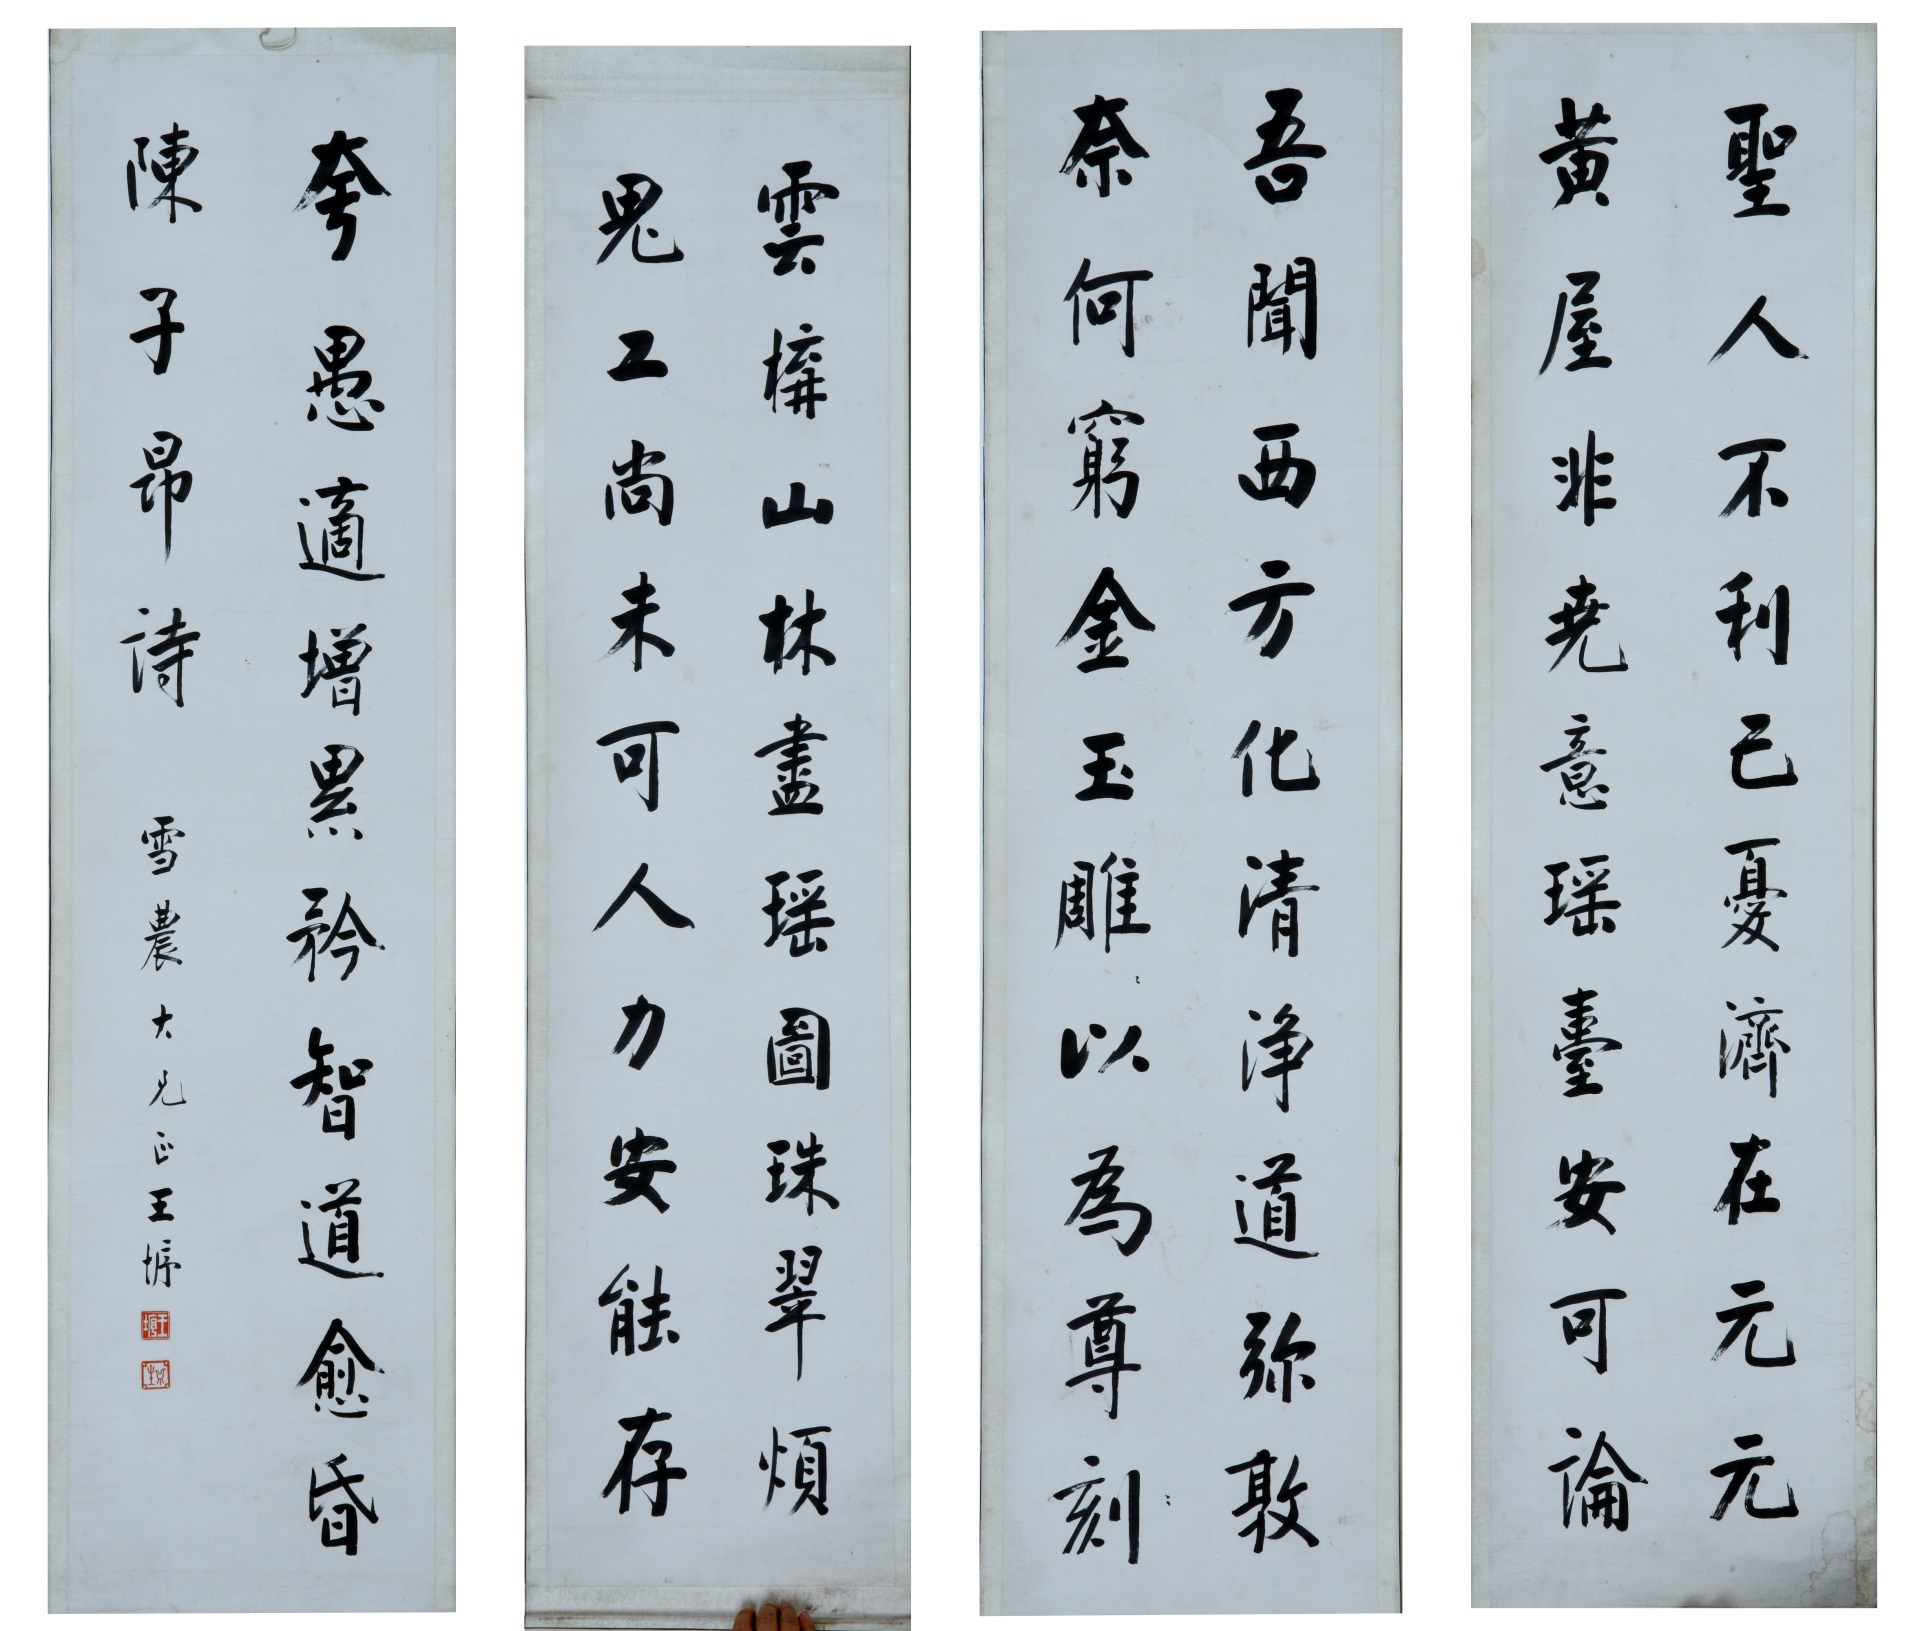 聖人不利己憂濟在元元
黃屋非堯意瑶臺安可論
吾聞西方化清淨道弥敦
奈何窮金玉雕以為尊刻
雲構山林盡瑶圖珠翠煩
鬼工尚未可人力安能存
夸愚適增累矜智道愈昏
陳子昂詩 雪農大兄正王垿
王垿